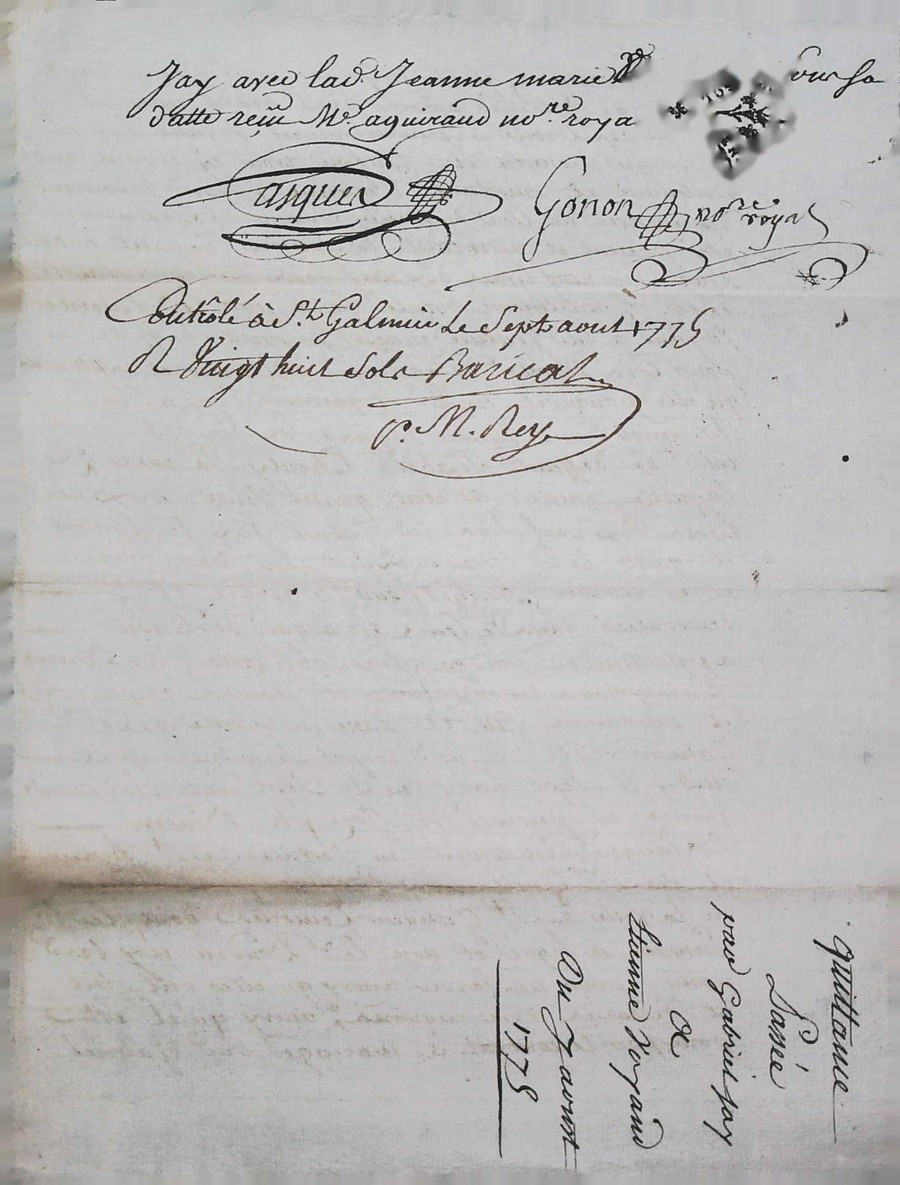 Jay avec lad. Jeanne marie sous sa
datte reçu Me aguiraud nore roya
Pasquet Gonon nore royal
Controlé à St Galmier Le Sept aout 1775
R Vingt huit Sols Baricat
p. M. Rey
quittance
Passée
par Gabriel jay
a
Etienne Voyand
Du 7 aoust
1775